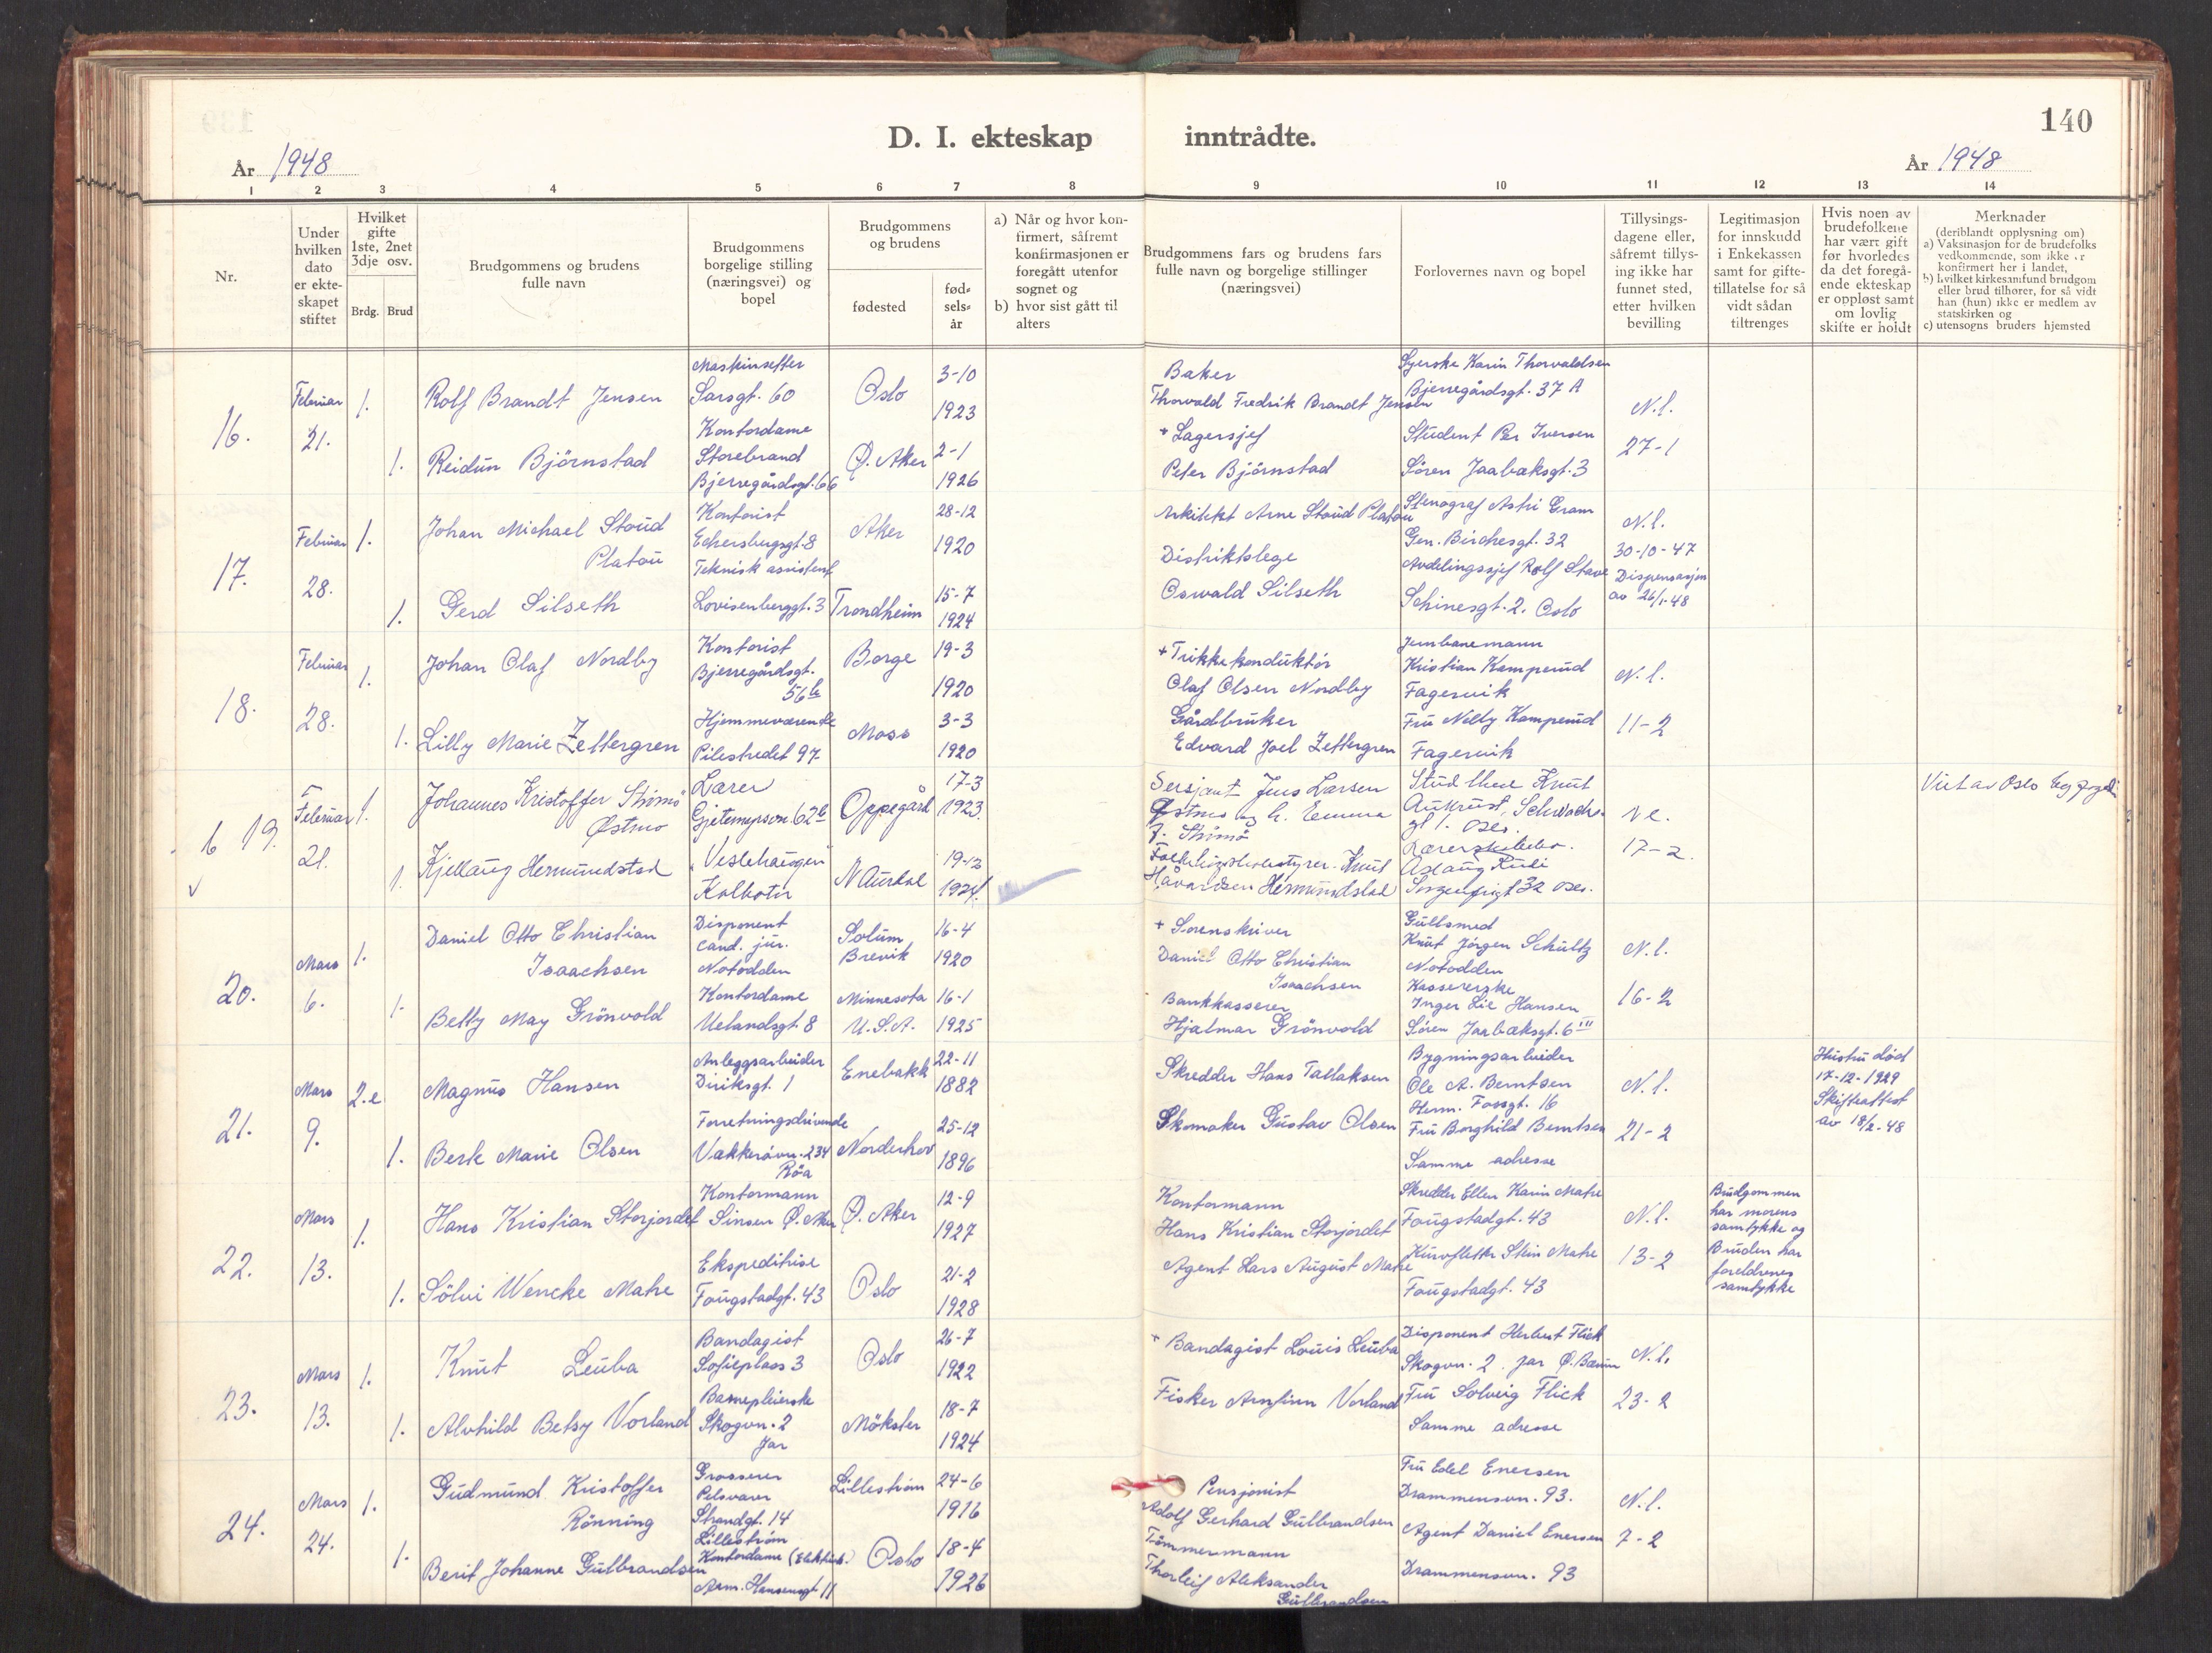 140
D. I. ekteskap inntrådte.
År 1948
År 1948
1 2 3 4 5 6 7 8 9 10 11 12 13 14
Nr.
Under
hvilken
dato
er ekte-
skapet
stiftet
Hvilket
gifte
1ste, 2net
3dje osv.
Brdg. Brud
Brudgommens og brudens
fulle navn
Brudgommens
borgelige stilling
(næringsvei) og
bopel
Brudgommens
og brudens
fødested
fød-
sels-
år
a) Når og hvor kon-
firmert, såfremt
konfirmasjonen er
foregått utenfor
sognet og
b) hvor sist gått til
alters
Brudgommens fars og brudens fars
fulle navn og borgelige stillinger
(næringsvei)
Forlovernes navn og bopel
Tillysings-
dagene eller,
såfremt tillys-
ing ikke har
funnet sted,
etter hvilken
bevilling
Legitimasjon
for innskudd
i Enkekassen
samt for gifte-
tillatelse for så
vidt sådan
tiltrenges
Hvis noen av
brudefolkene
har vært gift
før hvorledes
da det foregå-
ende ekteskap
er oppløst samt
om lovlig
skifte er holdt
Merknader
(deriblandt opplysning om)
a) Vaksinasjon for de brudefolks
vedkommende, som ikke er
konfirmert her i landet,
b) hvilket kirkesamfund brudgom
eller brud tilhører, for så vidt
han (hun) ikke er medlem av
statskirken og
c) utensogns bruders hjemsted
16.
Februar
21.
1.
1.
Rolf Brandt Jensen
Reidun Björnstad
Maskinsetter
Sarsgt. 60
Kontordame
Storebrand
Bjerregårdsgt. 66
Oslo
Ø. Aker
3-10
1923
2-1
1926
Baker
Thorvald Fredrik Brandt Jensen
+ Lagersjef
Peter Björnstad
Syerske Karin Thorvaldsen
Bjerregårdsgt. 37 A
Student Per Iversen
Sören Jaabæksgt. 3
N.l.
27-1
17.
Februar
28.
1.
1.
Johan Michael Stoud
Platou
Gerd Silseth
Kontorist
Eckersbergsgt. 8
Teknisk assistent
Lovisenberggt. 3
Aker
Trondheim
28-12
1920
15-7
1924
Arkitekt Arne Stoud Platou
Distriktslege
Oswald Silseth
Stenograf Astri Gram
Gen. Birchesgt. 32
Avdelingssjef Rolf Stave
Schinesgt. 2. Oslo
N.l.
30-10-47
Dispensasjon
av 26/1-48
18.
Februar
28.
1.
1.
Johan Olaf Nordby
Lilly Marie Zettergren
Kontorist
Bjerregårdsgt.
56b
Hjemmeværende
Pilestredet 97
Borge
Moss
19-3
1920
3-3
1920
+ Trikkekonduktör
Olaf Olsen Nordby
Gårdbruker
Edvard Joel Zettergren
Jernbanemann
Kristian Kamperud
Fagervik
Fru Nelly Kamperud
Fagervik
N.l.
11-2
19.
Februar
21.
1.
1.
Johannes Kristoffer Strömö
Østmo
Kjellaug Hermundstad
Lærer
Gjetemyrsvn. 62b
"Veslehaugen"
Kolbotn
Oppegård
N Aurdal
17-3
1923.
19-12
1924.
Sersjant Jens Larsen
Østmo og h. Emma
J. Strömö
Folkehögskolestyrer. Knut
Håvardsen Hermundstad
Stud theol Knut
Aukrust, Schwachs-
gt 1. Oslo.
Aslaug
Sorgenfrigt 32 Oslo.
N l.
17-2.
20.
Mars
6.
1.
1.
Daniel Otto Christian
Isaachsen
Betty May Grönvold
Disponent
cand. jur.
Notodden
Kontordame
Uelandsgt. 8
Solum
Brevik
Minnesota
U.S.A.
16-4
1920
16-1
1925
+ Sorenskriver
Daniel Otto Christian
Isaachsen
Bankkasserer
Hjalmar Grönvold
Gullsmed
Knut Jörgen Schultz
Notodden
Kassererske
Inger Lie Hansen
Sören Jaabæksgt. 6 III
N.l.
16-2
21.
Mars
9.
2.e
1.
Magnus Hansen
Berte Marie Olsen
Anleggsarbeider
Diriksgt. 1
Forretningsdrivende
Vækkerövn. 234
Röa
Enebakk
Norderhov
22-11
1882
25-12
1896
Skredder Hans Tallaksen
Skomaker Gustav Olsen
Bygningsarbeider
Ole A. Berntsen
Herm. Fossgt. 16
Fru Borghild Berntsen
Samme adresse
N.l.
21-2
Hustru död
17-12-1929
Skifteattest
av 18/2-48
22.
Mars
13.
1.
1.
Hans Kristian Storjordet
Sölvi Wencke Matre
Kontormann
Sinsen Ø. Aker
Ekspeditrise
Fougstadgt. 43
Ø. Aker
Oslo
12-9
1927
21-2
1928
Kontormann
Hans Kristian Storjordet
Agent Lars August Matre
Skredder Ellen Karin Matre
Fougstadgt. 43
Stein Matre
Fougstadgt. 43
N.l.
13-2
Brudgommen
har morens
samtykke og
Bruden har
foreldrenes
samtykke
23.
Mars
13.
1.
1.
Knut Leuba
Alvhild Betsy Vorland
Bandagist
Sofieplass 3
Barnepleierske
Skogvn. 2
Jar
Oslo
Mökster
26-7
1922
18-7
1924
+ Bandagist Louis Leuba
Fisker Arnfinn Vorland
Disponent Herbert Flick
Skogvn. 2. Jar Ø. Bærum
Fru Solveig Flick
Samme adresse
N.l.
23-2
24.
Mars
24.
1.
1.
Gudmund Kristoffer
Rönning
Berit Johanne Gulbrandsen
Grosserer
Pelsvarer
Strandgt. 14
Lilleström
Kontordame
Arm. Hansensgt 11
Lilleström
Oslo
24-6
1916
18-4
1926
Pensjonist
Adolf Gerhard Gulbrandsen
Tömmermann
Thorleif Aleksander
Gulbrandsen
Fru Edel Enersen
Drammensvn. 93.
Agent Daniel Enersen
Drammensvn. 93
N.l.
7-2